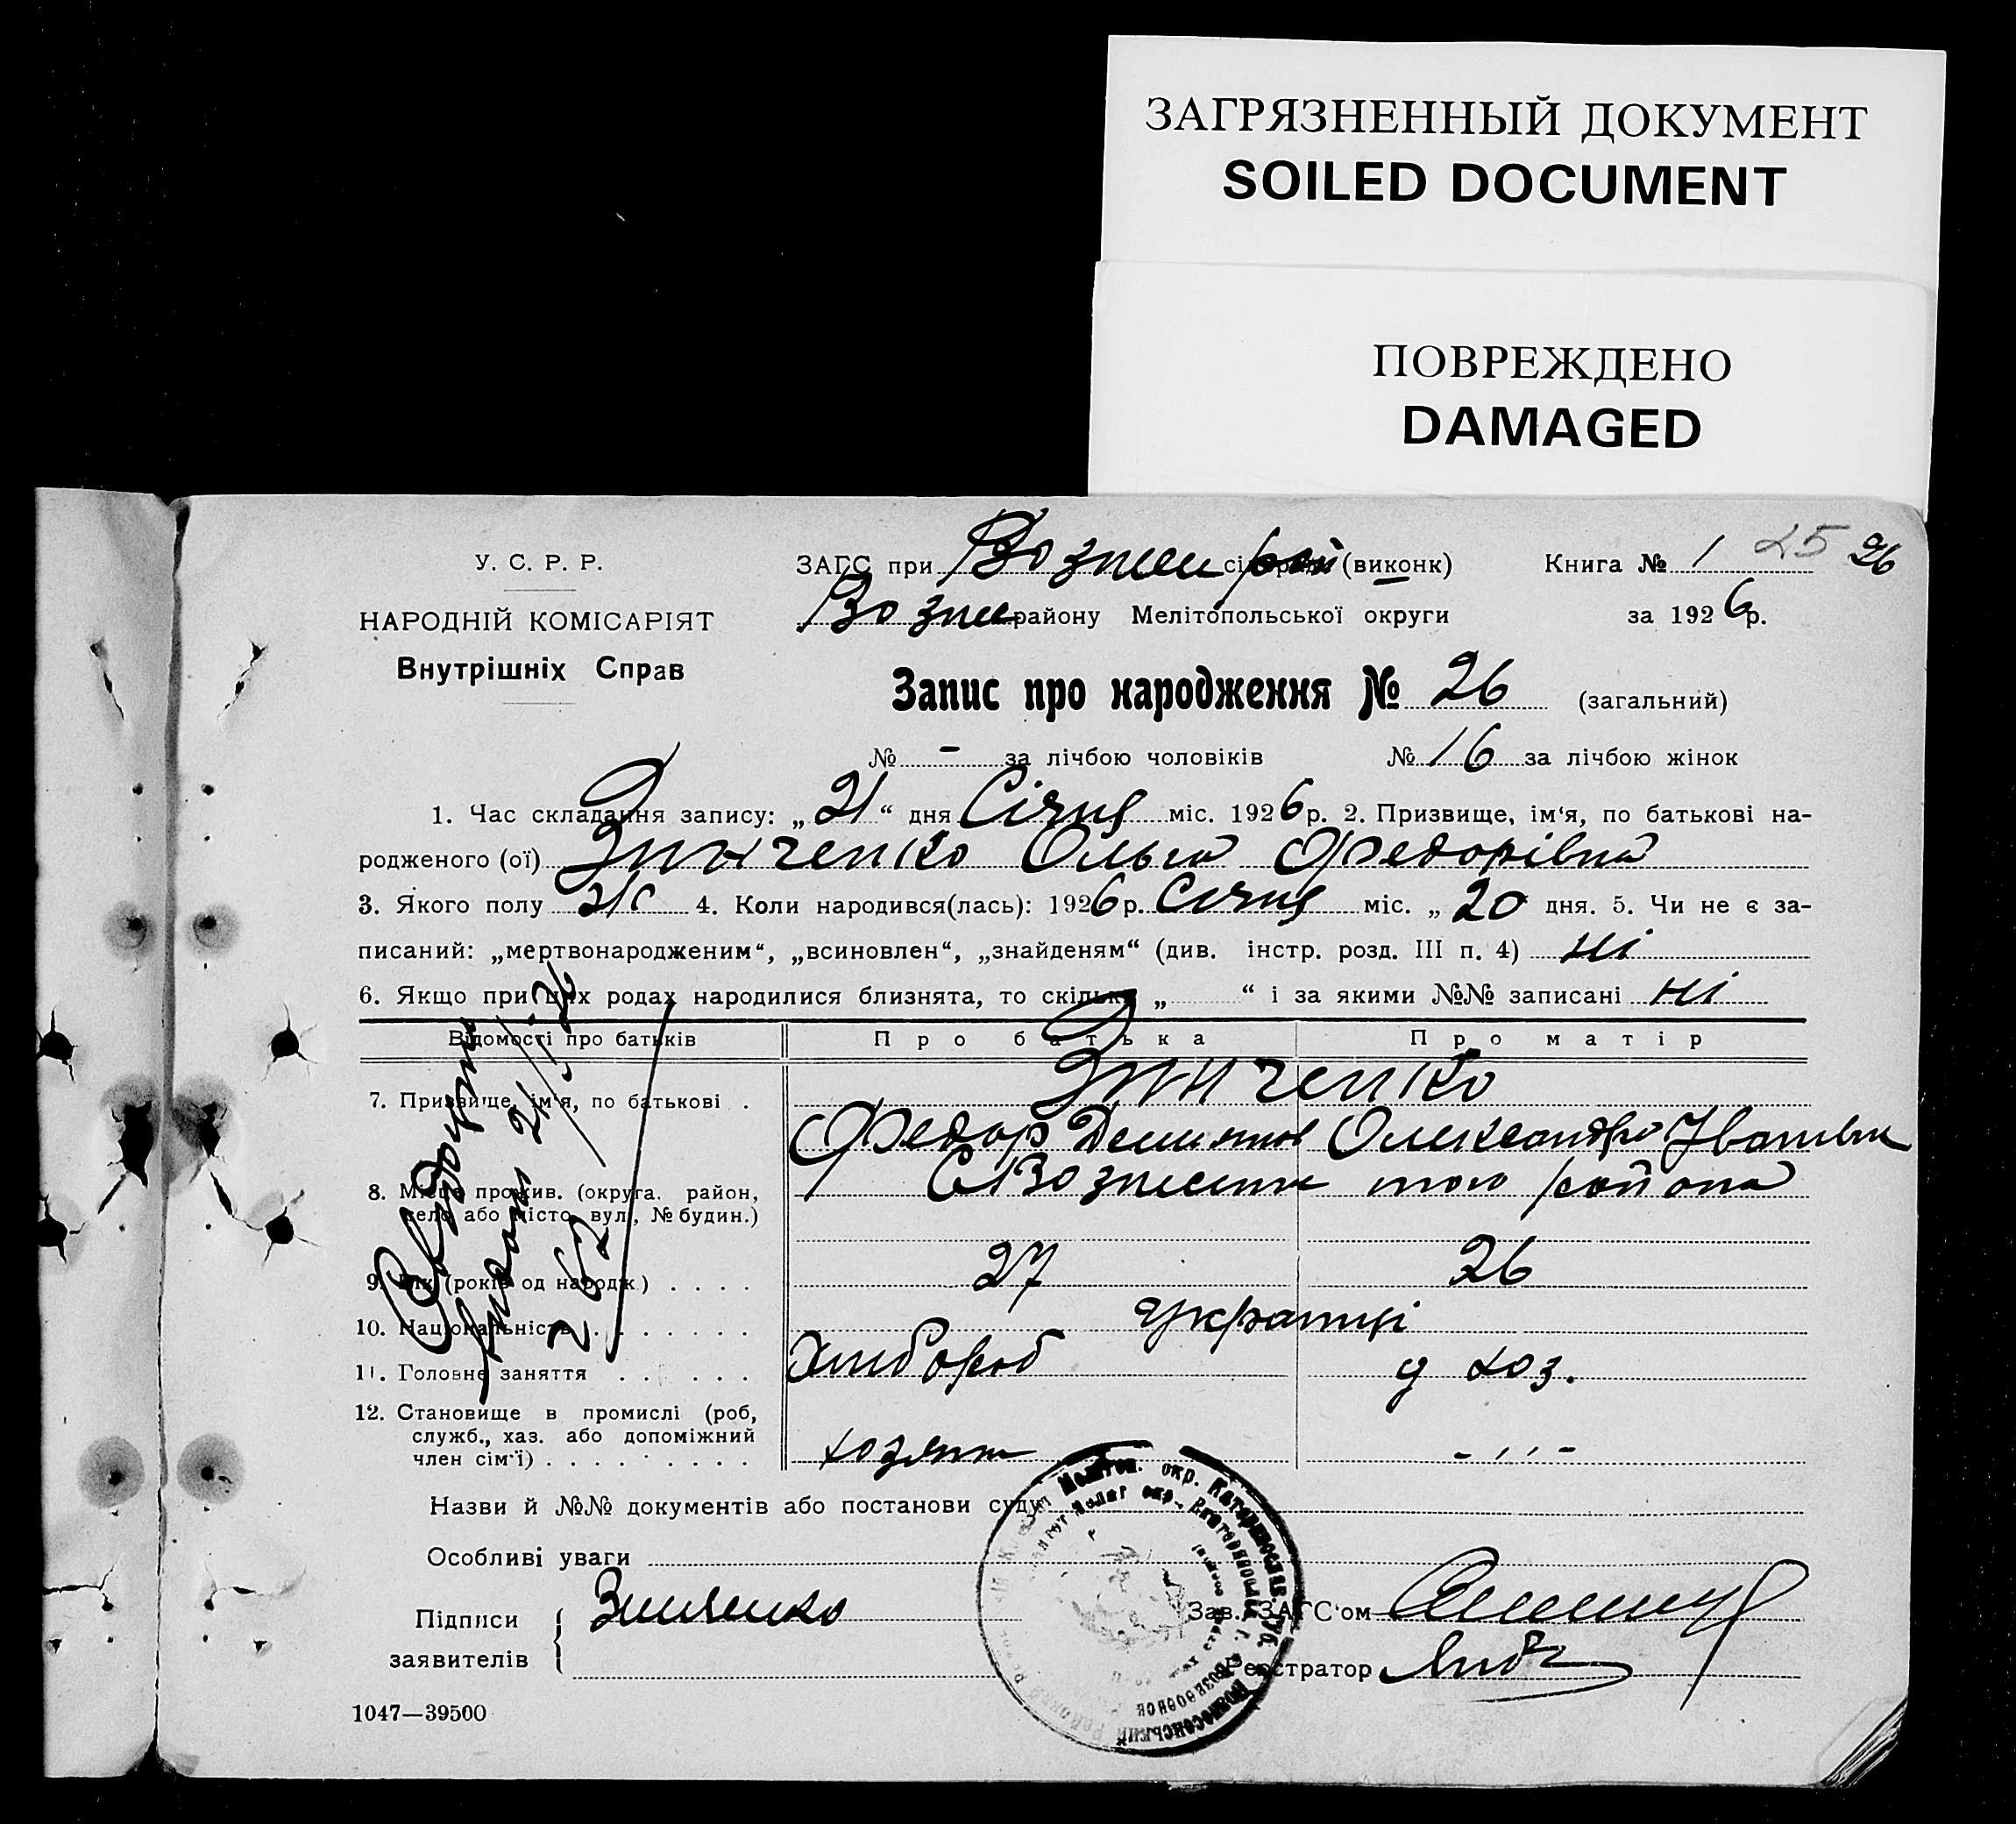 ЗАГРЯЗНЕННЫЙ ДОКУМЕНТ
SOILED DOCUMENT
ПОВРЕЖДЕНО
DAMAGED
У. С. Р. Р.
НАРОДНІЙ КОМІСАРІЯТ
Внутрішніх Справ
ЗАГС при Вознесен рай (виконк)
Книга № 1 25 26
Вознес району Мелітопольської округи
за 1926 р.
Запис про народження № 26 (загальний)
№ - за лічбою чоловіків № 16 за лічбою жінок
1. Час складання запису: „21“ дня Січня міс. 1926 р. 2. Призвище, ім'я, по батькові на-
родженого (ої) Зинченко Ольга Федорівна
3. Якого полу ж 4. Коли народився(лась): 1926 р. Січня міс. „20 дня. 5. Чи не є за-
писаний: „мертвонародженим“, „всиновлен“, „знайденям“ (див. інстр. розд. III п. 4) ні
6. Якщо при цих родах народилися близнята, то скільки „ “ і за якими №№ записані ні
Відомості про батьків
Про батька
Про матір
7. Призвище, ім'я, по батькові .
Зинченко
Федор Демянов
Олександра Іванівна
8. Місце прожив. (округа. район,
село або місто, вул., № будин.)
с Вознесенка того района
9. Вік (років од народж.) . . . .
27
26
10. Національність . . . . . . .
Українці
11. Головне заняття . . . . . .
Хлібороб
д хоз.
12. Становище в промислі (роб,
служб., хаз. або допоміжний
член сім'ї) . . . . . . . . .
хозяин
- ,, -
Назви й №№ документів або постанови суду
Особливі уваги
Підписи
заявителів
Зинченко
Зав. ЗАГС'ом
Реєстратор
1047—39500